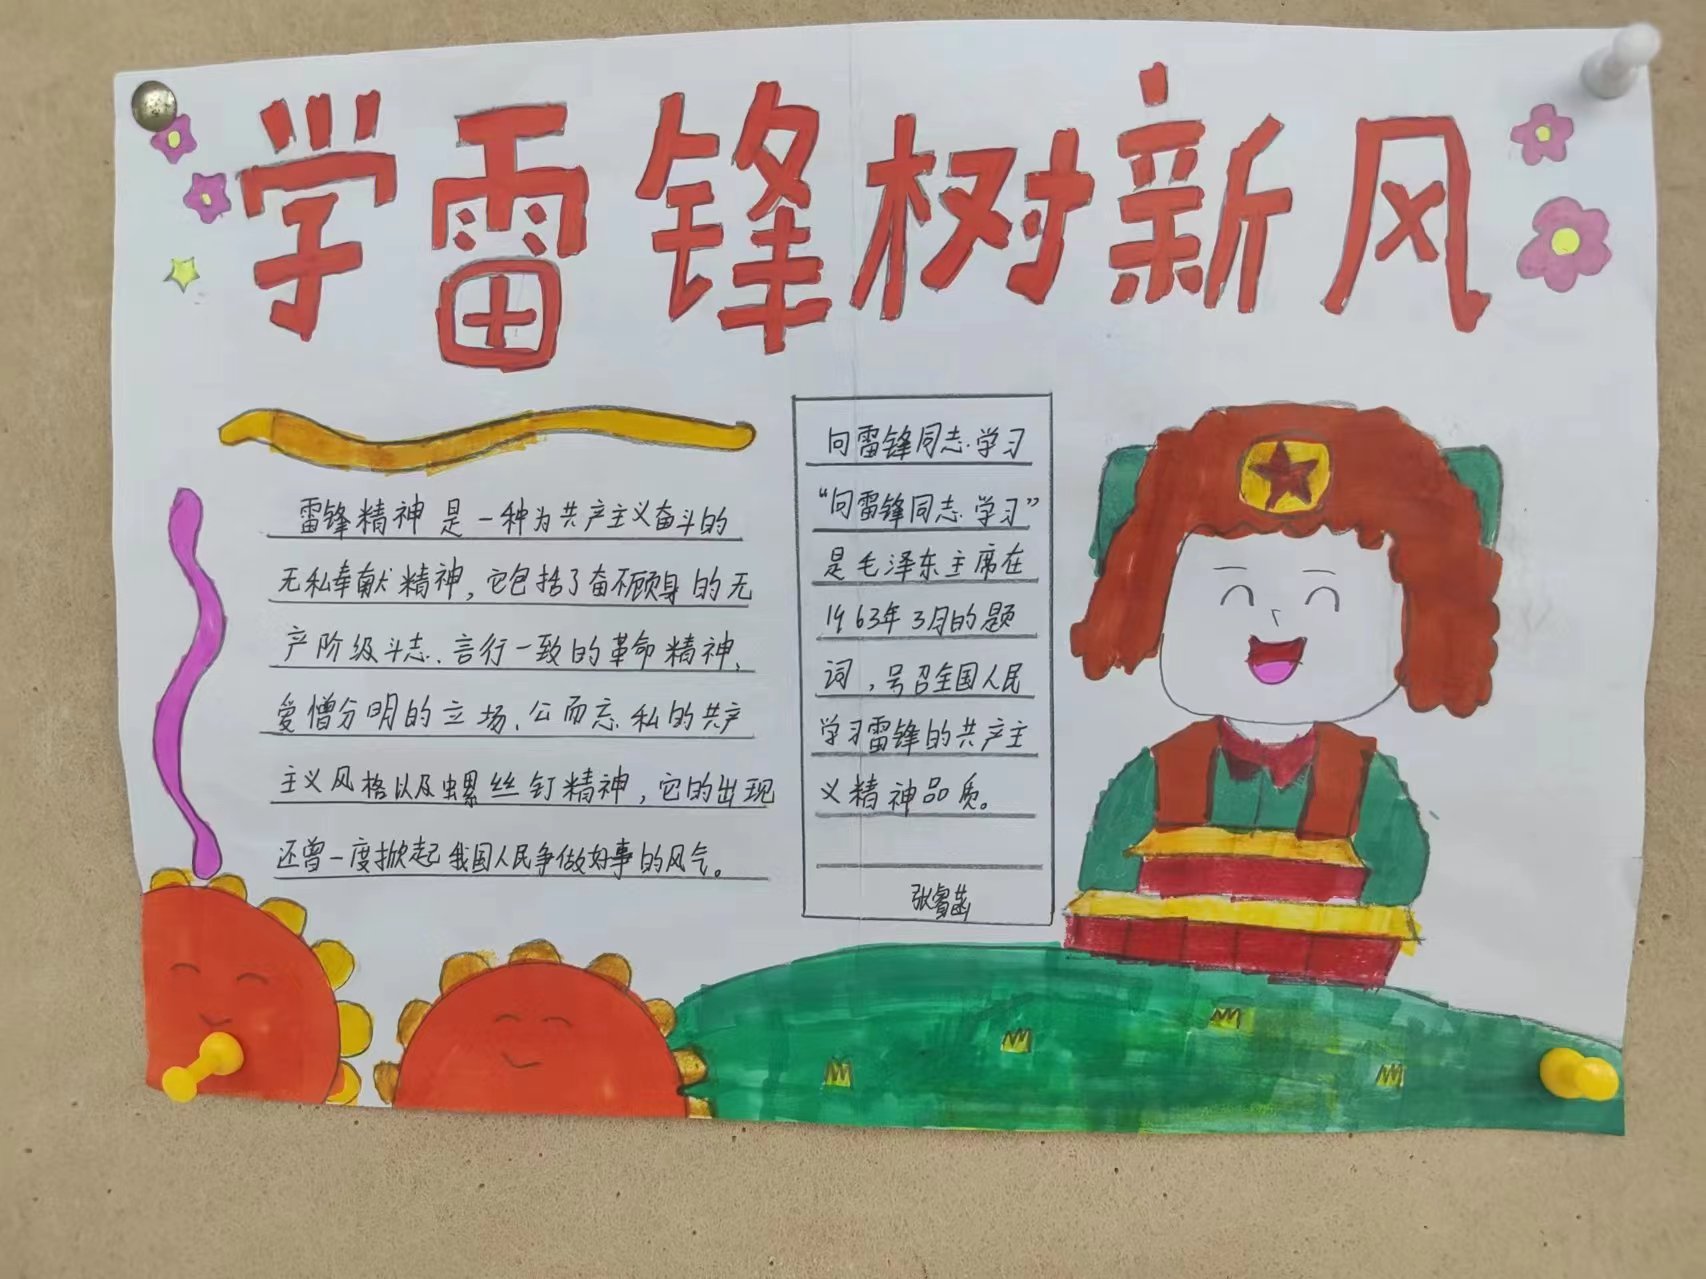 学雷锋树新风
雷锋精神是一种为共产主义奋斗的
无私奉献精神，它包括了奋不顾身的无
产阶级斗志、言行一致的革命精神、
爱憎分明的立场、公而忘私的共产
主义风格以及螺丝钉精神，它的出现
还曾一度掀起我国人民争做好事的风气。
向雷锋同志学习
“向雷锋同志学习”
是毛泽东主席在
1963年3月的题
词，号召全国人民
学习雷锋的共产主
义精神品质。
张睿菡